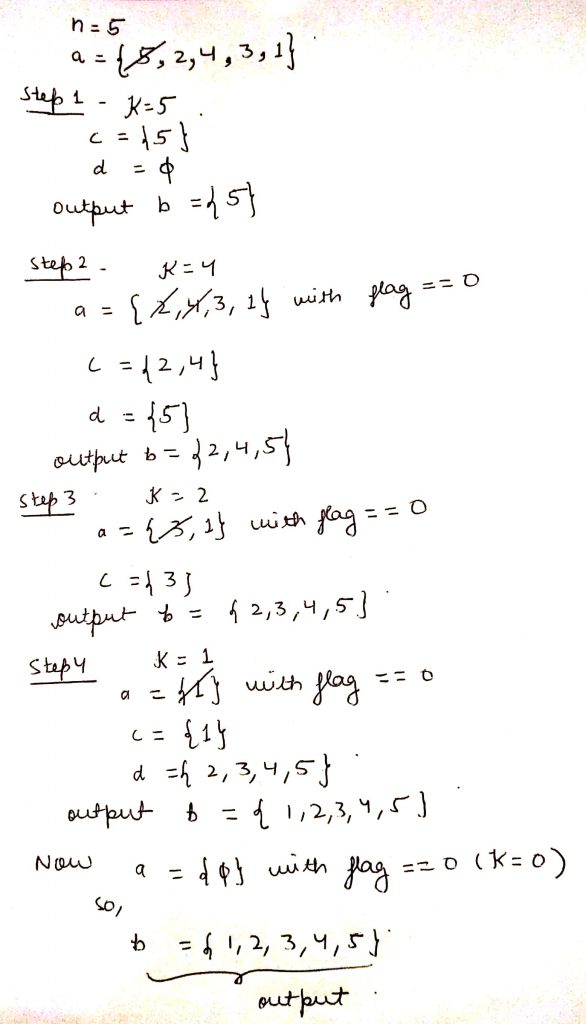 n=5
a = {5, 2, 4, 3, 1}
Step 1 - K=5
c = {5}
d = ϕ
output b = {5}
Step 2 - K=4
a = {2, 4, 3, 1} with flag == 0
c = {2, 4}
d = {5}
output b = {2, 4, 5}
Step 3 K = 2
a = {3, 1} with flag == 0
c = {3}
output b = {2, 3, 4, 5}
Step 4 K = 1
a = {1} with flag == 0
c = {1}
d = {2, 3, 4, 5}
output b = {1, 2, 3, 4, 5}
Now a = {ϕ} with flag == 0 (K=0)
so,
b = {1, 2, 3, 4, 5}
output